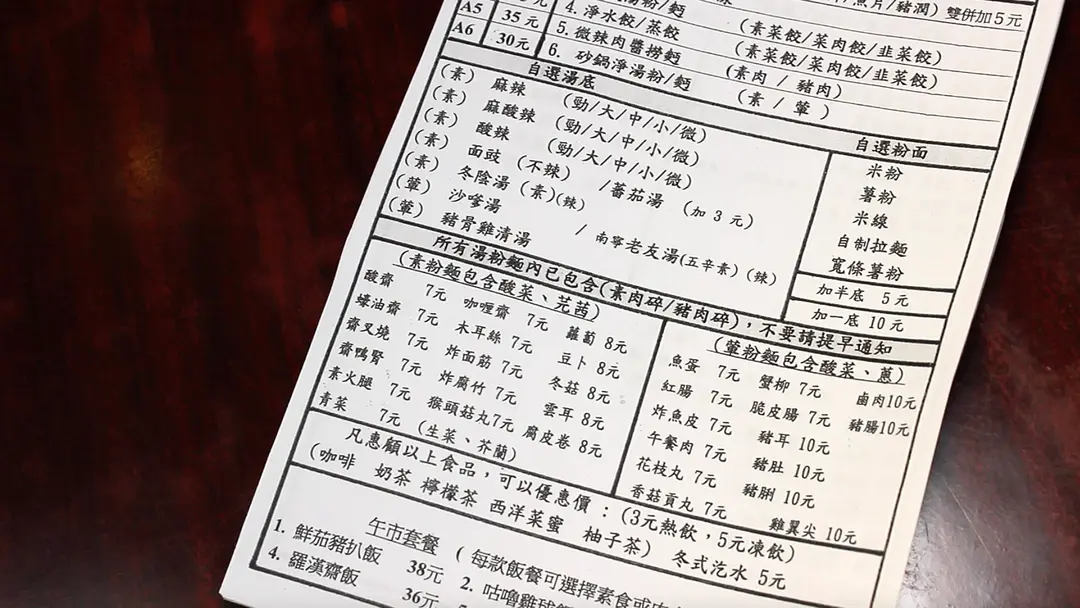 魚片/豬潤) 雙併加5元
A5 35元 4. 淨水餃/蒸餃 (素菜餃/菜肉餃/韭菜餃)
A6 30元 5. 微辣肉醬撈麵 (素菜餃/菜肉餃/韭菜餃)
6. 砂鍋淨湯粉/麵 (素肉 / 豬肉)
(素 / 葷 )
自選湯底
(素) 麻辣 (勁/大/中/小/微)
(素) 麻酸辣 (勁/大/中/小/微)
(素) 酸辣 (勁/大/中/小/微)
(素) 面豉 (不辣) /蕃茄湯 (加 3 元)
(素) 冬陰湯 (素)(辣)
(葷) 沙嗲湯 / 南寧老友湯(五辛素) (辣)
(葷) 豬骨雞清湯
自選粉面
米粉
薯粉
米線
自制拉麵
寬條薯粉
加半底 5元
加一底 10元
所有湯粉麵內已包含(素肉碎/豬肉碎)，不要請提早通知
(素粉麵包含酸菜、芫茜)
酸齋 7元 咖喱齋 7元 蘿蔔 8元
蠔油齋 7元 木耳絲 7元 豆卜 8元
齋叉燒 7元 炸面筋 7元 冬菇 8元
齋鴨腎 7元 炸腐竹 7元 雲耳 8元
素火腿 7元 猴頭菇丸7元 腐皮卷 8元
青菜 7元 (生菜、芥蘭)
(葷粉麵包含酸菜、蔥)
魚蛋 7元 蟹柳 7元 鹵肉10元
紅腸 7元 脆皮腸 7元 豬腸10元
炸魚皮 7元 豬耳 10元
午餐肉 7元 豬肚 10元
花枝丸 7元 豬脷 10元
香菇貢丸 7元 雞翼尖 10元
凡惠顧以上食品，可以優惠價：(3元熱飲，5元凍飲)
(咖啡 奶茶 檸檬茶 西洋菜蜜 柚子茶) 冬式汽水 5元
午市套餐 ( 每款飯餐可選擇素食或
1. 鮮茄豬扒飯 38元 2. 咕嚕雞球
4. 羅漢齋飯 36元